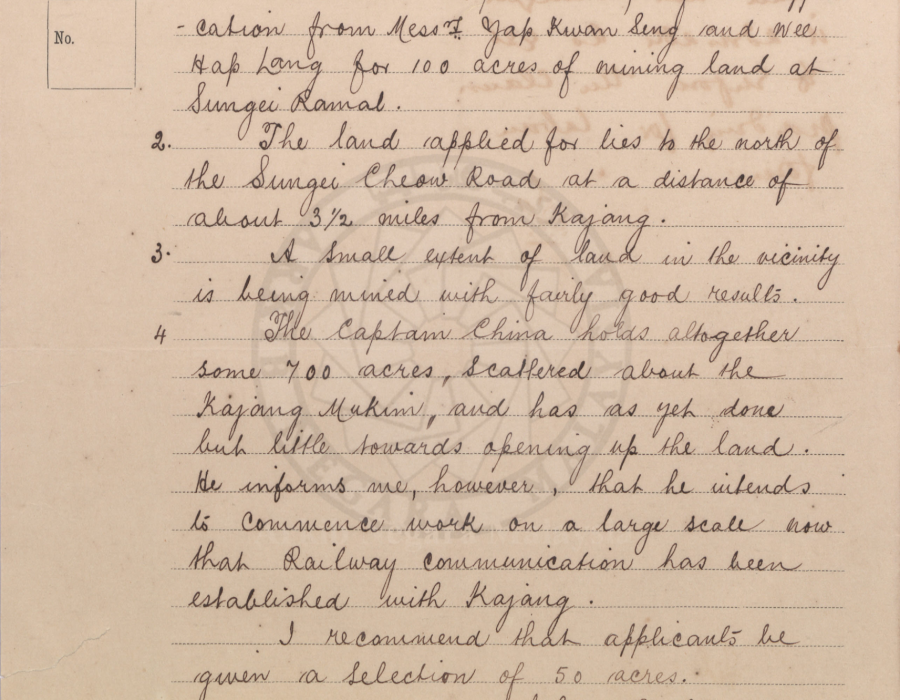 No.
-cation from Messrs Yap Kwan Seng and Wee
Hap Lang for 100 acres of mining land at
Sungei Ramal.
2. The land applied for lies to the north of
the Sungei Cheow Road at a distance of
about 3 1/2 miles from Kajang.
3. A small extent of land in the vicinity
is being mined with fairly good results.
4 The Captain China holds altogether
some 700 acres, scattered about the
Kajang Mukim, and has as yet done
but little towards opening up the land.
He informs me, however, that he intends
to commence work on a large scale now
that Railway communication has been
established with Kajang.
I recommend that applicants be
given a selection of 50 acres.